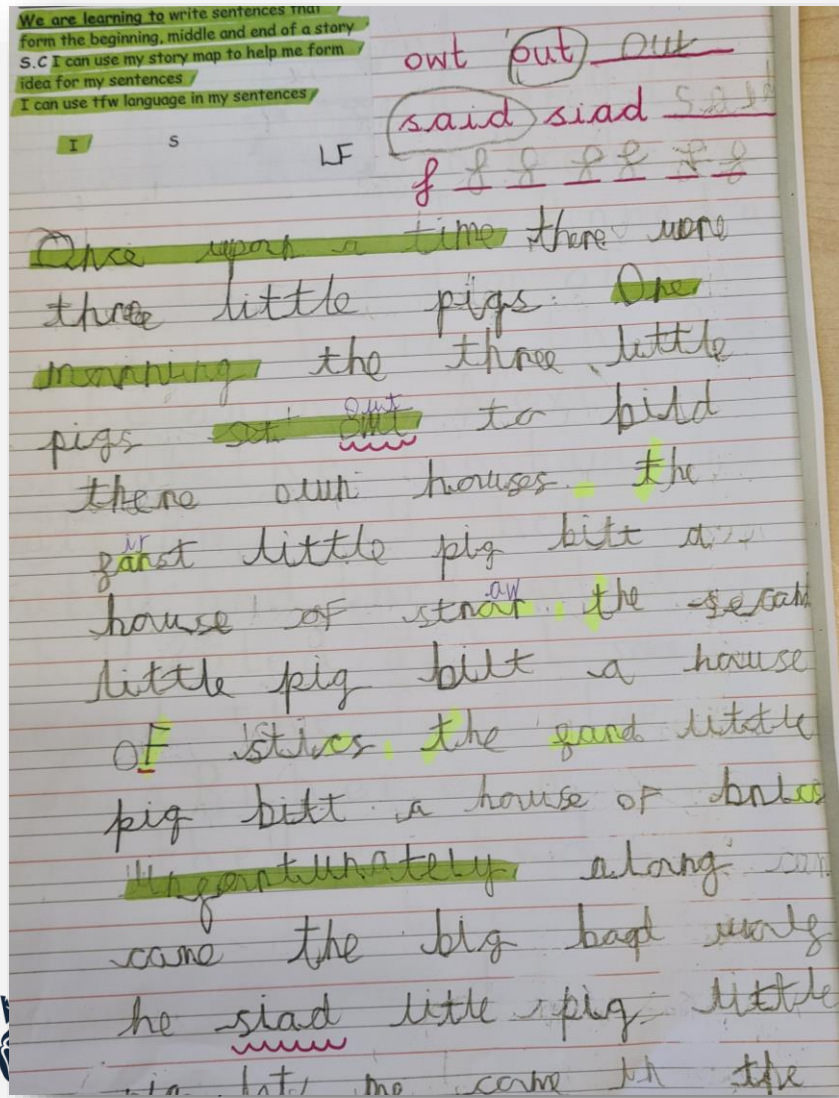 We are learning to write sentences that
form the beginning, middle and end of a story
S.C I can use my story map to help me form
idea for my sentences
I can use tfw language in my sentences
I S LF
owt out out
said siad said
f f f f f f f
Once upon a time there were
three little pigs. One
mornning the three little
pigs set out out to bild
there own houses. the
ir
farst little pig bilt a
aw
house of strar. the secand
little pig bilt a house
of stics. the fard little
pig bilt a house of brics
Unfortunately alonng
came the big bad wolf
he siad little pig little
pig let me come in the